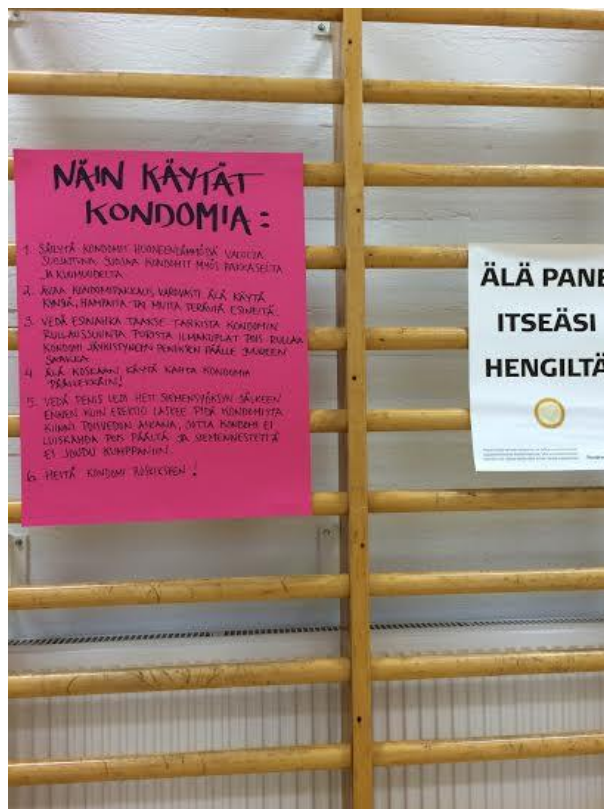 NÄIN KÄYTÄT
KONDOMIA:
1. SÄILYTÄ KONDOMIT HUONEENLÄMMÖSSÄ VALOLTA
SUOJATTUNA. SUOJAA KONDOMIT MYÖS PAKKASELTA
JA KUUMUUDELTA
2. AVAA KONDOMIPAKKAUS VAROVASTI ÄLÄ KÄYTÄ
KYNSIÄ, HAMPAITA TAI MUITA TERÄVIÄ ESINEITÄ.
3. VEDÄ ESINAHKA TAAKSE TARKISTA KONDOMIN
RULLAUSSUUNTA PURISTA ILMAKUPLAT POIS RULLAA
KONDOMI JÄYKISTYNEEN PENIKSEN PÄÄLLE JUUREEN
SAAKKA.
4. ÄLÄ KOSKAAN KÄYTÄ KAHTA KONDOMIA
PÄÄLLEKKÄIN!
5. VEDÄ PENIS ULOS HETI SIEMENSYÖKSYN JÄLKEEN
ENNEN KUIN EREKTIO LASKEE PIDÄ KONDOMISTA
KIINNI POISVEDON AIKANA, JOTTA KONDOMI EI
LUISKAHDA POIS PÄÄLTÄ JA SIEMENNESTETTÄ
EI JOUDU KUMPPANIIN.
6. HEITÄ KONDOMI ROSKIKSEEN!
ÄLÄ PANE
ITSEÄSI
HENGILTÄ